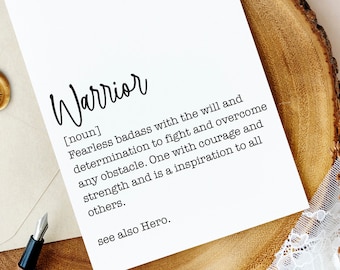 Warrior
[noun]
Fearless badass with the will and
determination to fight and overcome
any obstacle. One with courage and
strength and is a inspiration to all
others.
see also Hero.